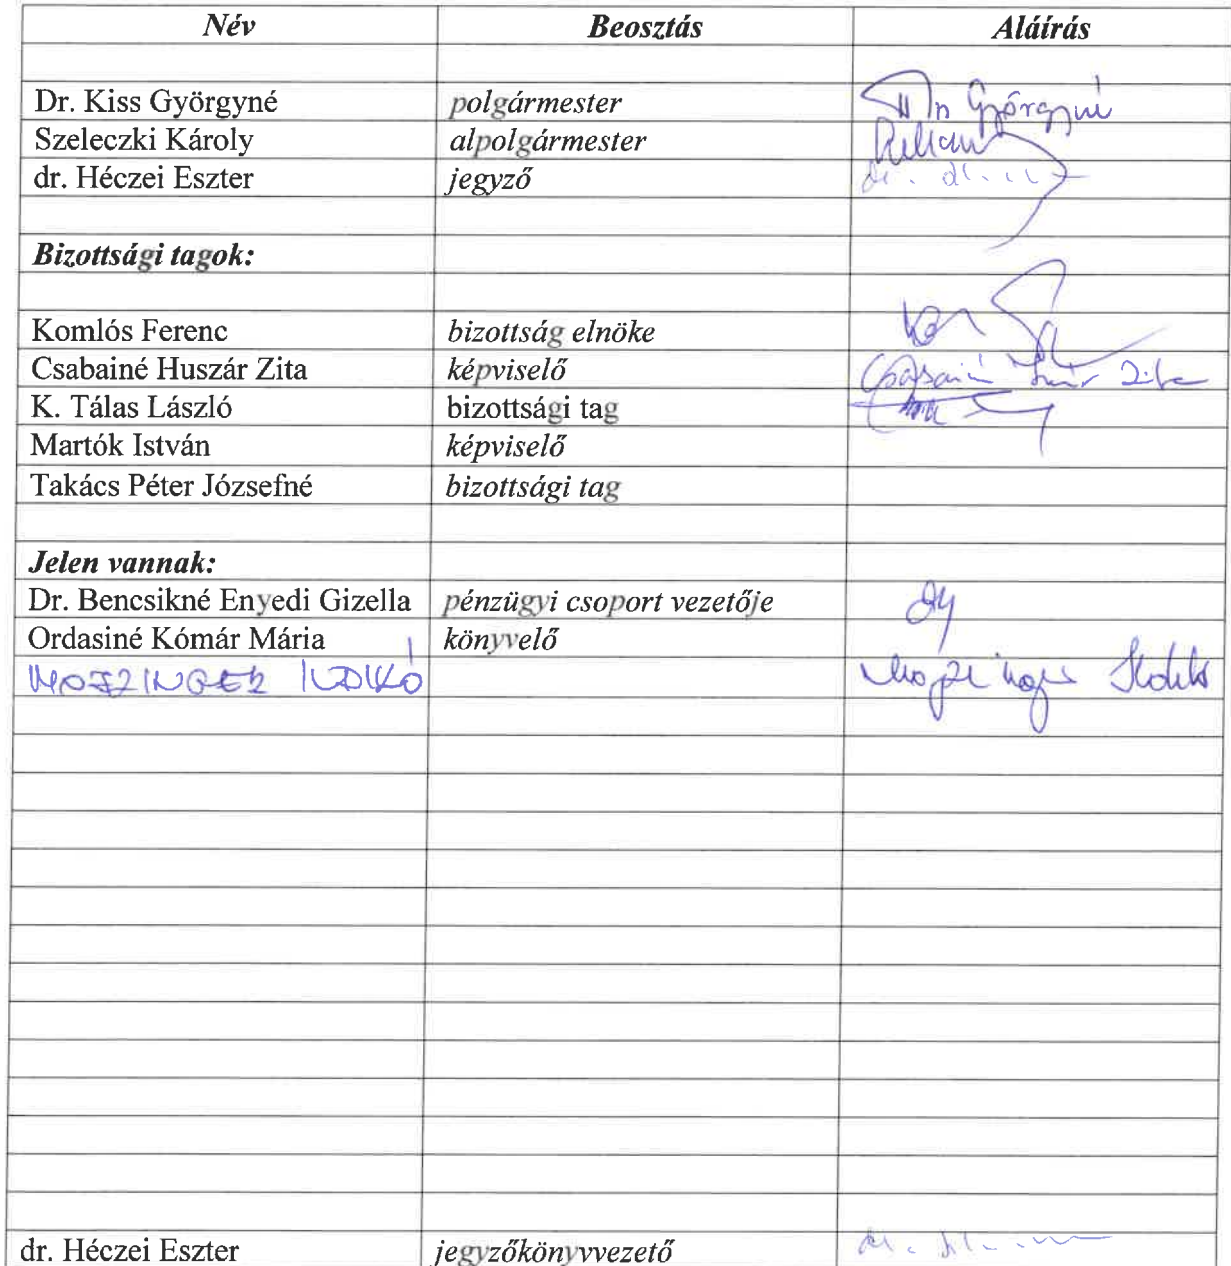 Név Beosztás Aláírás
Dr. Kiss Györgyné polgármester Györgyné
Szeleczki Károly alpolgármester
dr. Héczei Eszter jegyző
Bizottsági tagok:
Komlós Ferenc bizottság elnöke
Csabainé Huszár Zita képviselő Csabainé Zita
K. Tálas László bizottsági tag
Martók István képviselő
Takács Péter Józsefné bizottsági tag
Jelen vannak:
Dr. Bencsikné Enyedi Gizella pénzügyi csoport vezetője
Ordasiné Kómár Mária könyvelő
MOJZINGER ILDIKÓ Mojzinger Ildikó
dr. Héczei Eszter jegyzőkönyvvezető